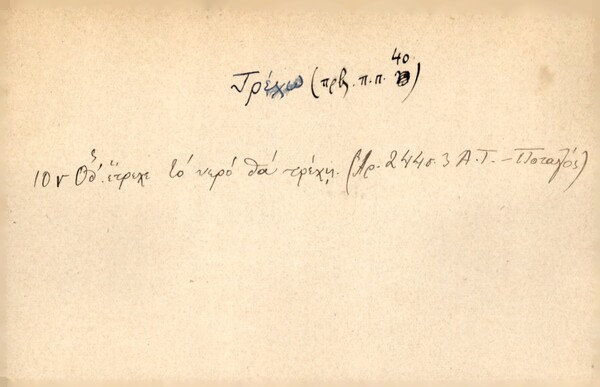 Τρέχω (πρβ. π.π. 40)
10ν Ὅθ' ἔτρεχε τό νερό θά τρέχῃ. (Ἀρ. 244 σ. 3 Α.Τ. – Ποταμός)